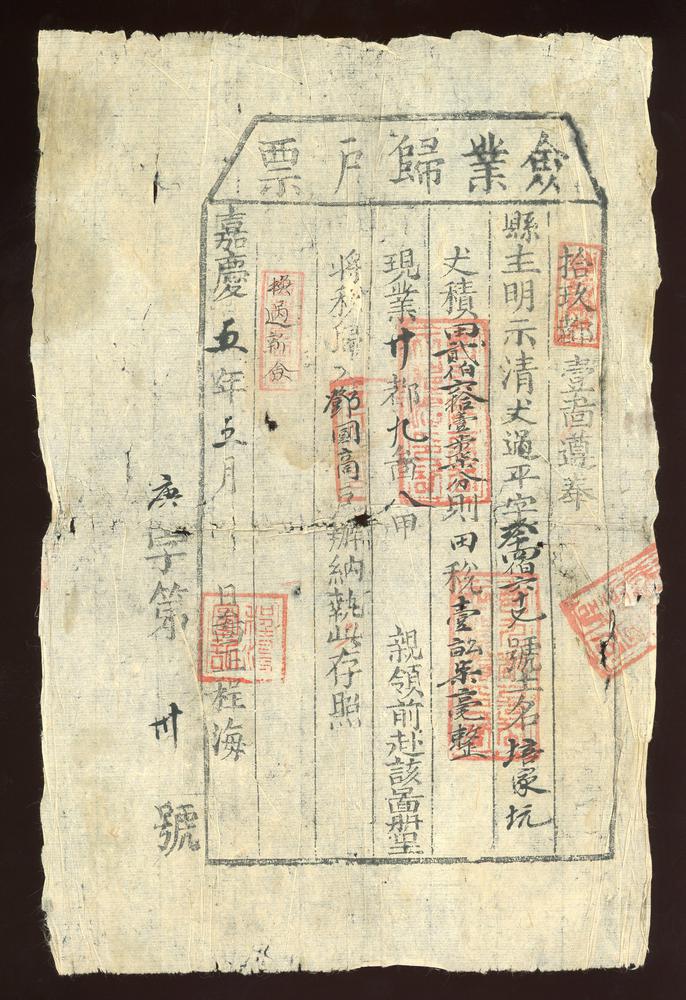 僉業歸戶票
拾玖都壹啚遵奉
縣主明示清丈過平字 六十七號土名培家坑
丈積田貳伯六拾壹步柒分則田稅壹 柒毫整
現業廿都九啚八甲 親領前赴該啚冊里
將稅歸入鄧國高戶辦納執此存照
換過前僉
嘉慶五年五月 日 啚正程海
庚字第卅號